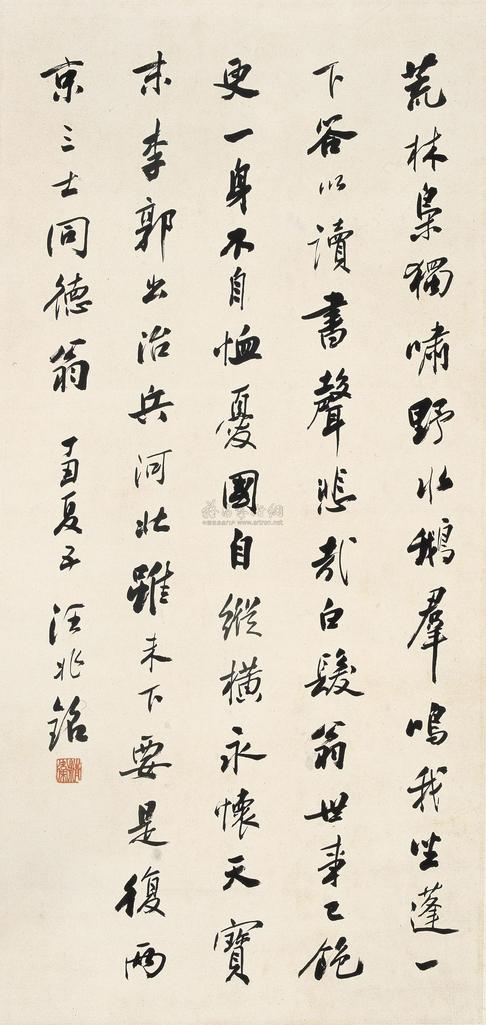 荒林梟獨嘯野水鵝羣鳴我坐蓬一
下答以讀書聲悲哉白髮翁世事已飽
更一身不自恤憂國自縱橫永懷天寶
末李郭出治兵河北雖未下要是復兩
京三士同德翁
夏 汪兆銘